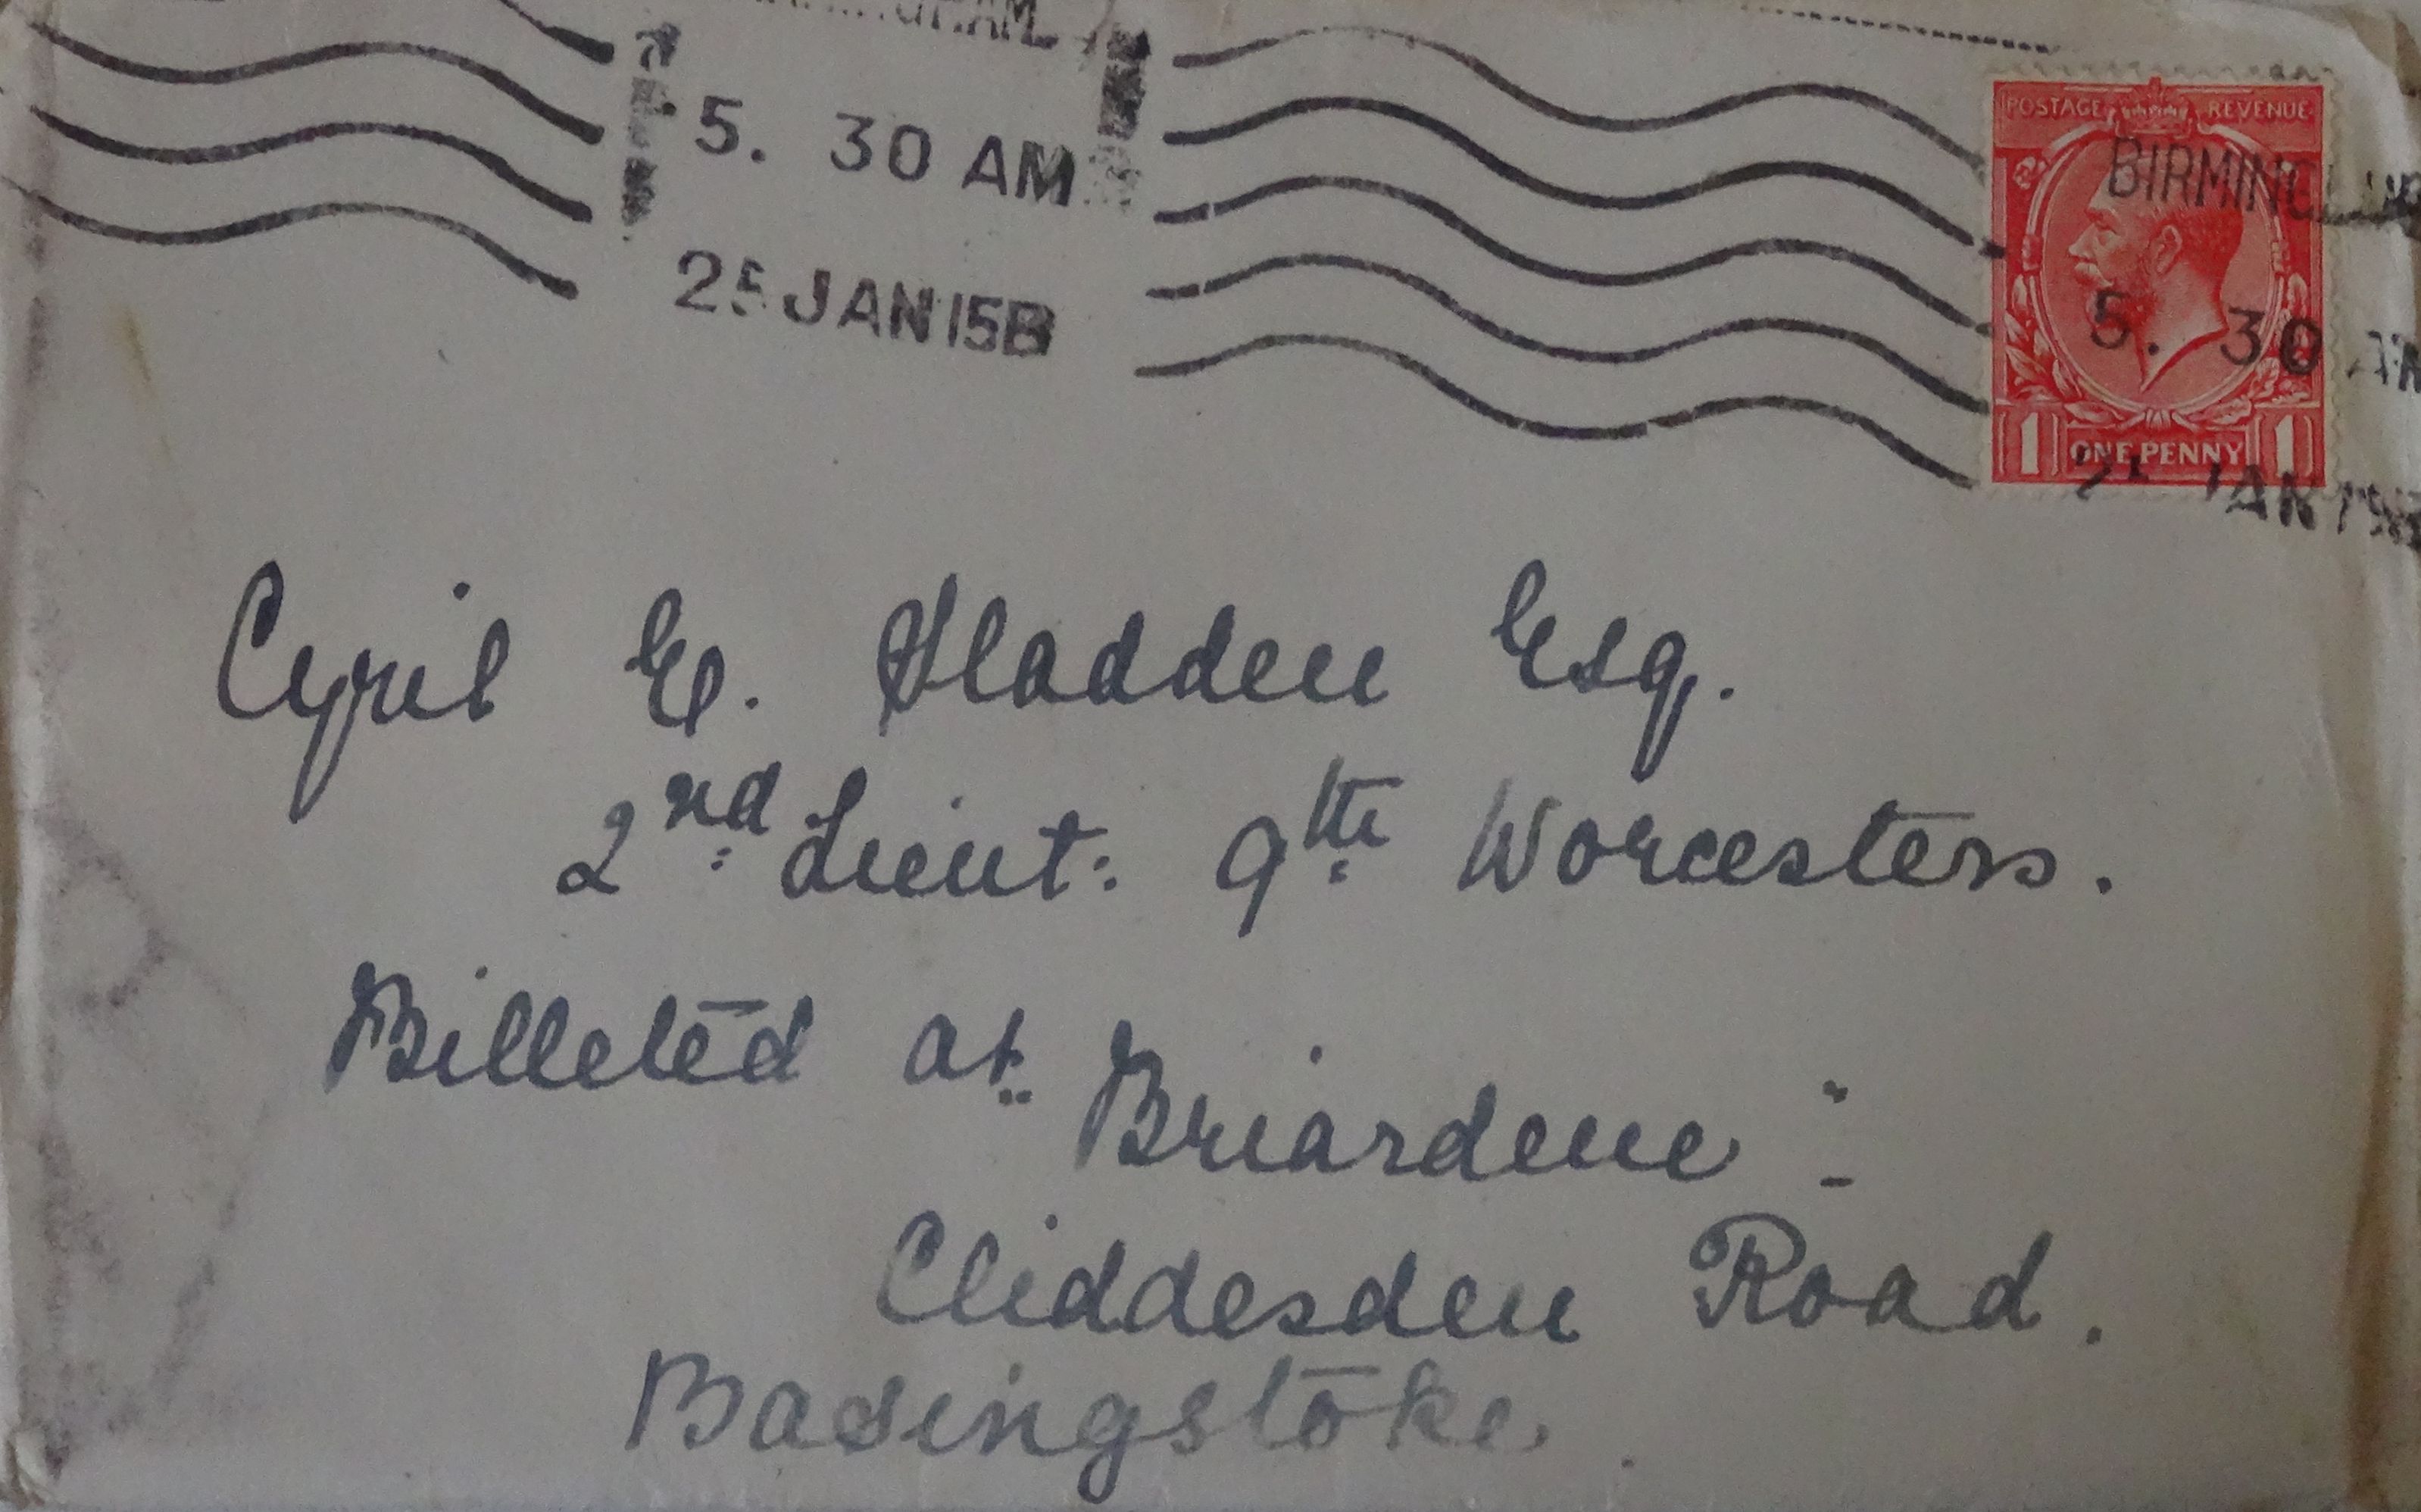 5. 30 AM
25 JAN 15 B
POSTAGE REVENUE
BIRMINGHAM
5. 30 AM
1 ONE PENNY 1
25 JAN 15
Cyril E. Sladden Esq.
2nd Lieut: 9th Worcesters.
Billeted at "Briardene"-
Cliddesden Road.
Basingstoke.